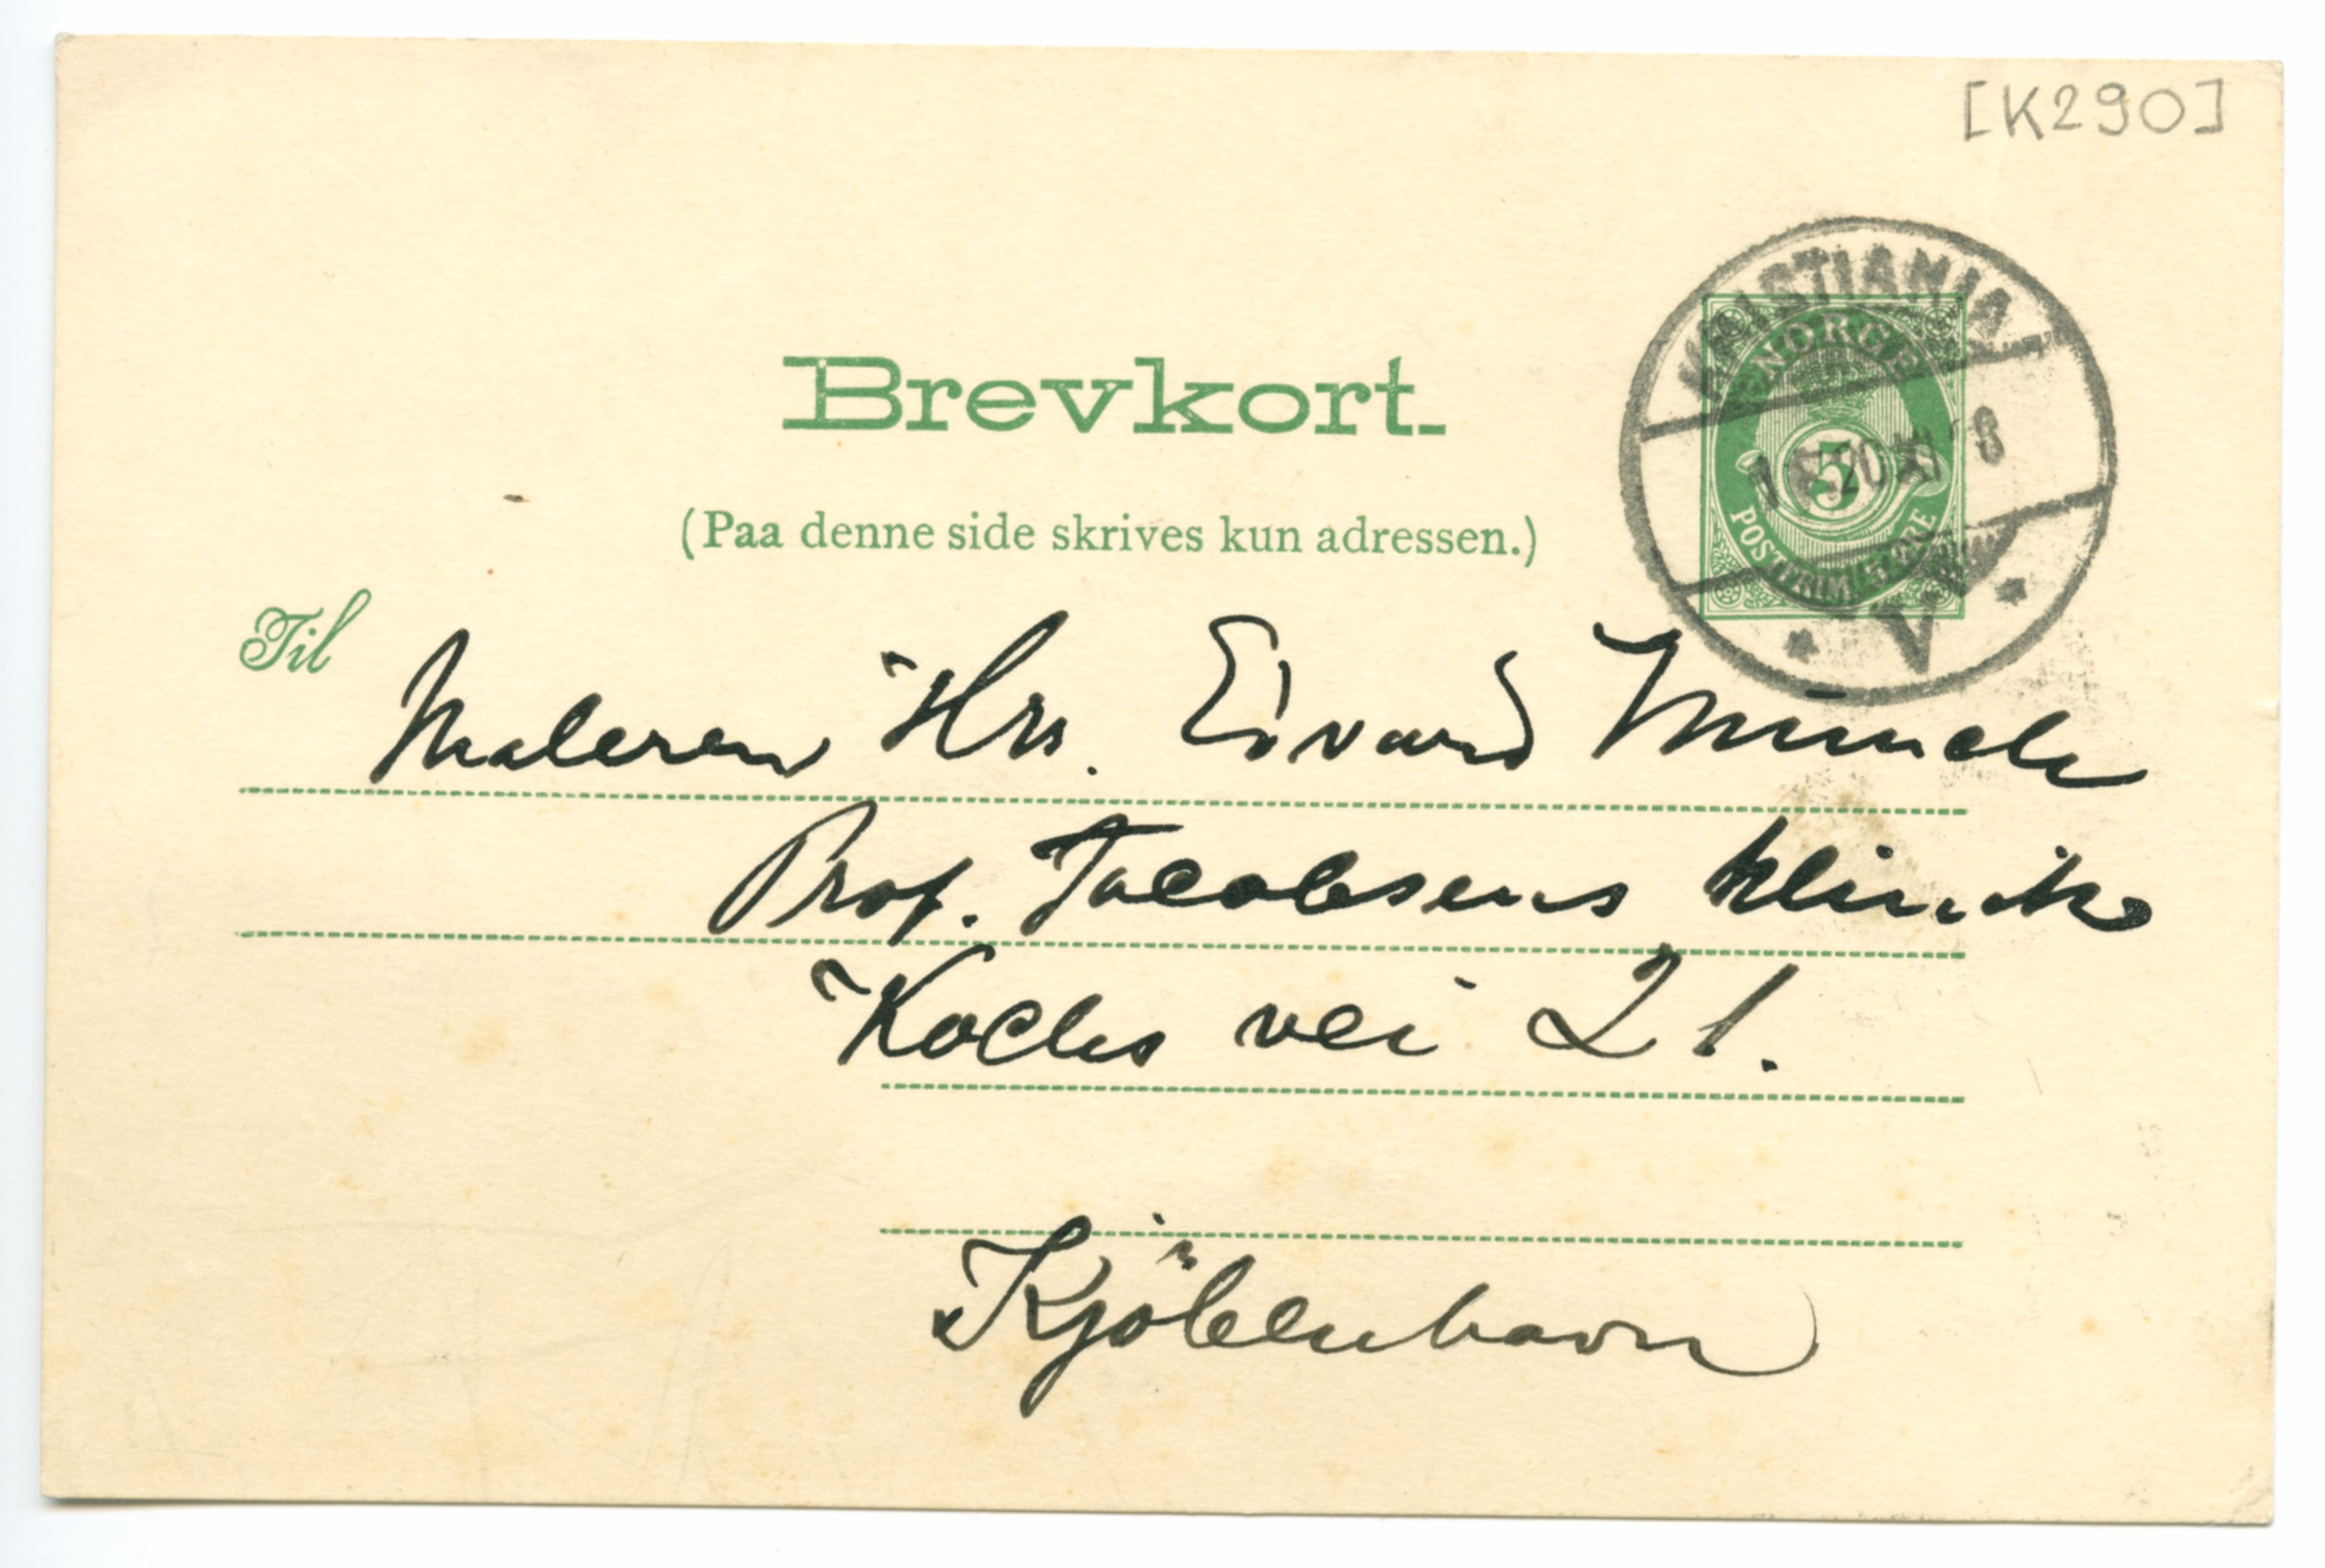 [K290]
KRISTIANIA
NORGE
5
POSTFRIM. 5 ØRE
V
Brevkort.
(Paa denne side skrives kun adressen.)
Til
Maleren Hrr. Edvard Munch
Prof. Jacobsens klinik
Kochs vei 21.
Kjöbenhavn